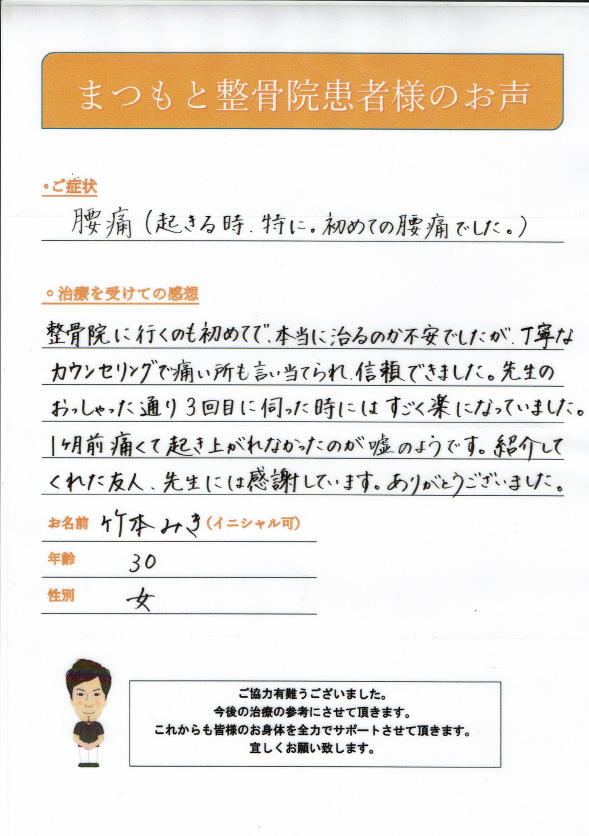 まつもと整骨院患者様のお声
◦ご症状
腰痛(起きる時、特に。初めての腰痛でした。)
◦治療を受けての感想
整骨院に行くのも初めてで、本当に治るのか不安でしたが、丁寧な
カウンセリングで痛い所も言い当てられ、信頼できました。先生の
おっしゃった通り3回目に伺った時にはすごく楽になっていました。
1ヶ月前痛くて起き上がれなかったのが嘘のようです。紹介して
くれた友人、先生には感謝しています。ありがとうございました。
お名前 竹本みき(イニシャル可)
年齢 30
性別 女
ご協力有難うございました。
今後の治療の参考にさせて頂きます。
これからも皆様のお身体を全力でサポートさせて頂きます。
宜しくお願い致します。